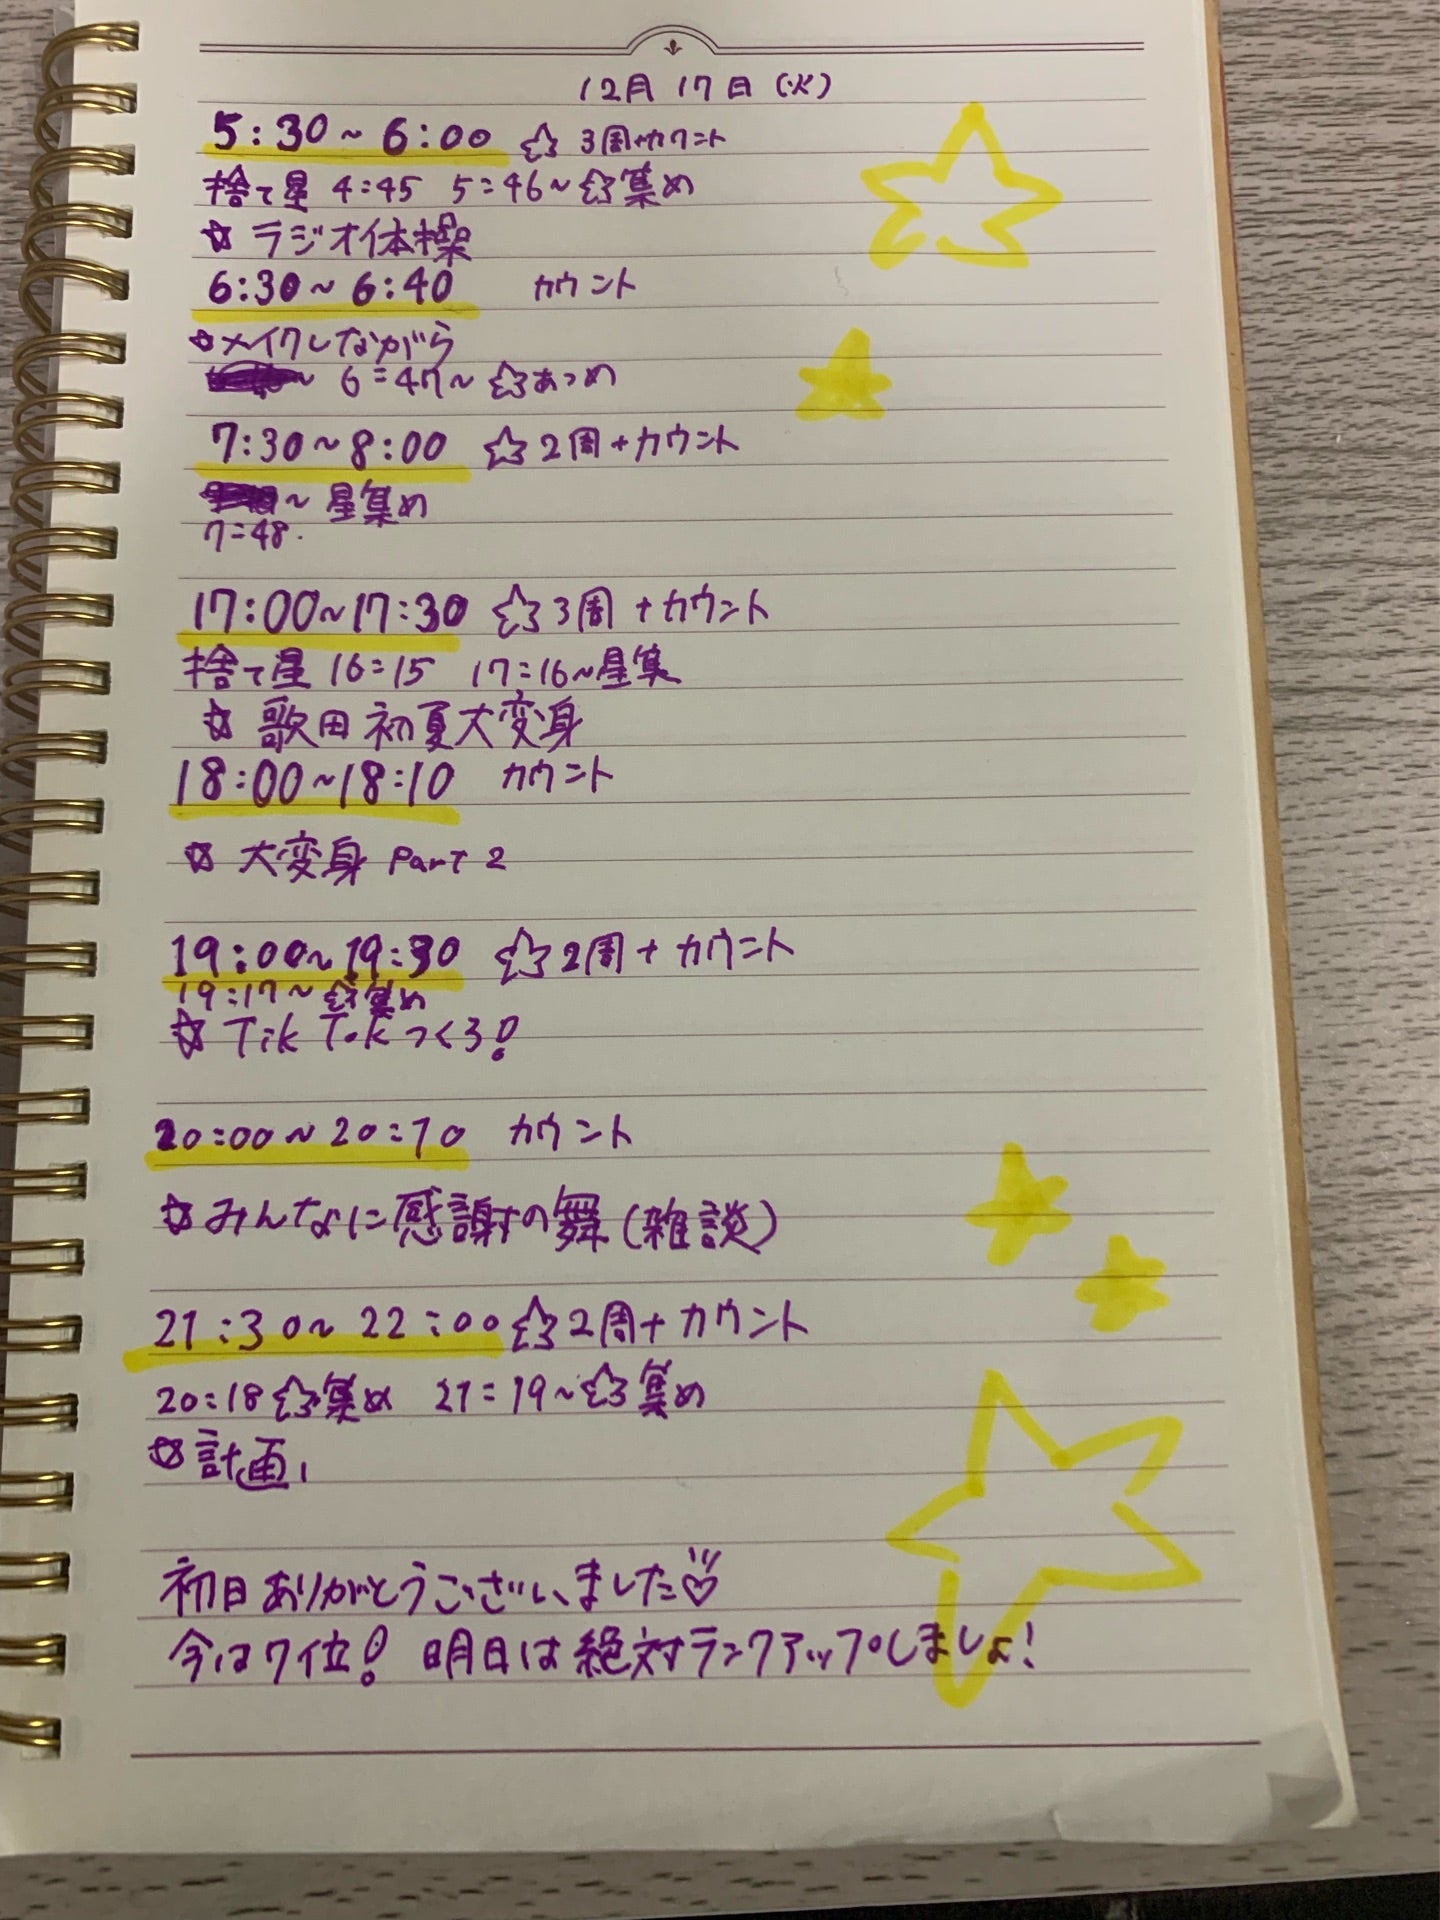 12月17日(火)
5:30~6:00 ☆3周+カウント
捨て星 4:45 5:46~☆集め
☆ ラジオ体操
6:30~6:40 カウント
☆メイクしながら
~ 6:47~ ☆あつめ
7:30~8:00 ☆2周+カウント
~ 星集め
7:48.
17:00~17:30 ☆3周+カウント
捨て星 16:15 17:16~星集
☆ 歌田初夏大変身
18:00~18:10 カウント
☆ 大変身 Part 2
19:00~19:30 ☆2周+カウント
19:17~ ☆集め
☆ Tik Tokつくろ!
20:00~20:10 カウント
☆みんなに感謝の舞(雑談)
21:30~22:00☆2周+カウント
20:18☆集め 21:19~☆集め
☆計画
初日ありがとうございました♡
今は7位! 明日は絶対ランクアップしましょ!